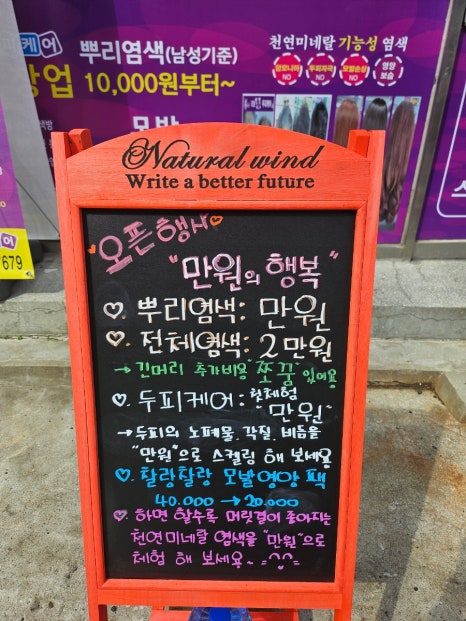 케어
뿌리염색(남성기준)
창업 10,000원부터~
모발
천연미네랄 기능성 염색
암모니아 NO
두피자극 NO
모발손상 NO
영양 보습
679
Natural wind
Write a better future
오픈행사
"만원의 행복"
♡. 뿌리염색: 만원
♡. 전체염색: 2만원
→ 긴머리 추가비용 "쪼끔" 있어용
♡. 두피케어: 첫체험 "만원"
→두피의 노폐물, 각질, 비듬을
"만원"으로 스켈링 해 보세용
♡. 찰랑찰랑 모발영양 팩
40.000 → 20.000
♡. 하면 할수록 머릿결이 좋아지는
천연미네랄 염색을 "만원"으로
체험 해 보세요~ =^^=